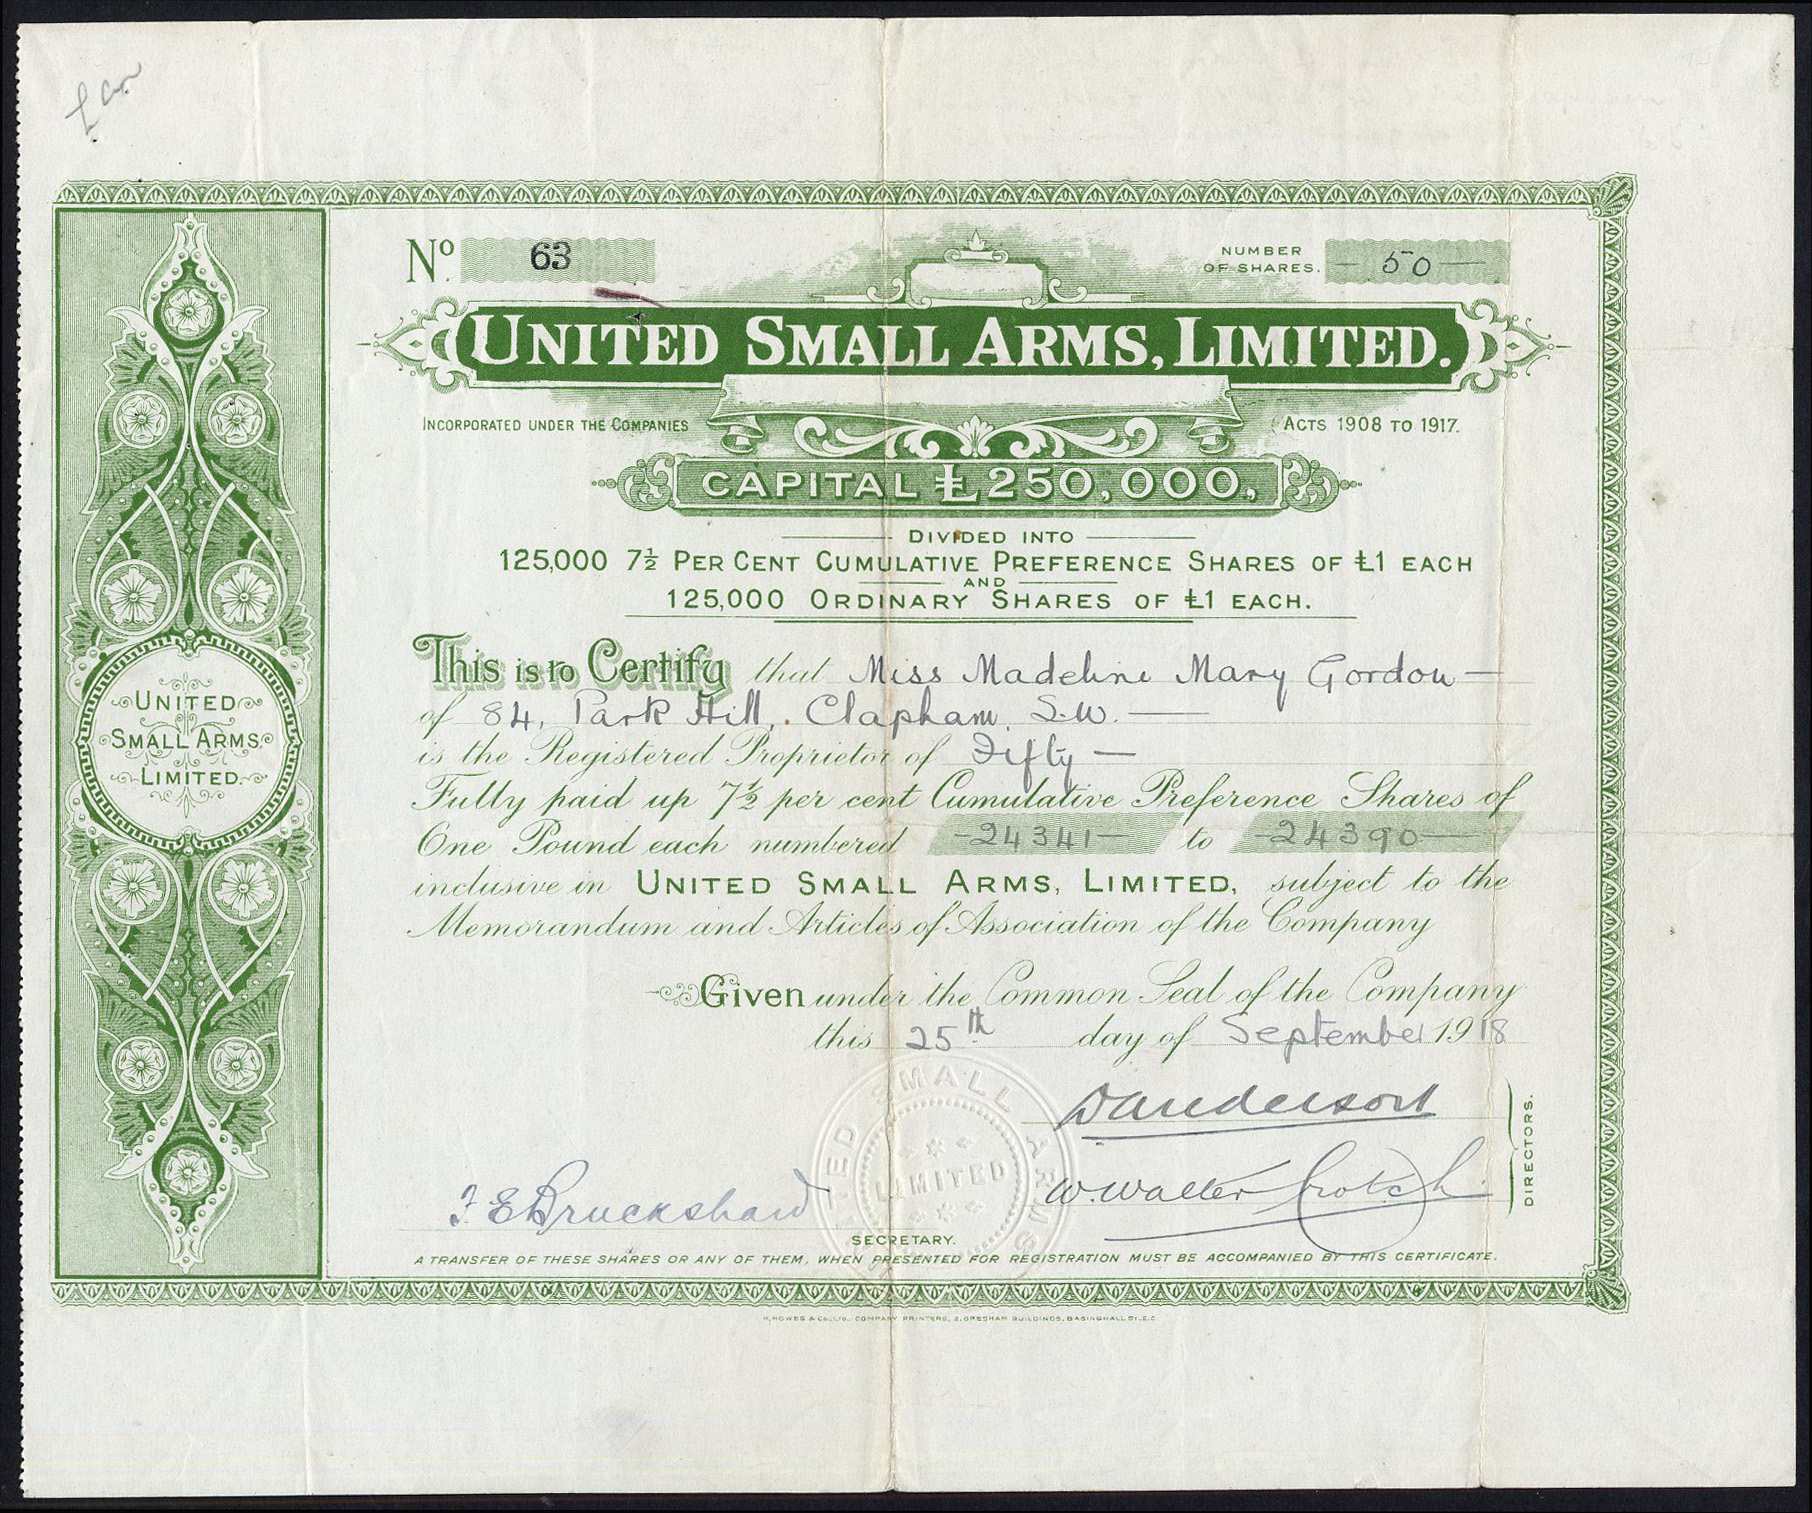 No. 63
NUMBER OF SHARES. - 50 -
UNITED SMALL ARMS, LIMITED.
INCORPORATED UNDER THE COMPANIES ACTS 1908 TO 1917.
CAPITAL £250,000,
DIVIDED INTO
125,000 7½ PER CENT CUMULATIVE PREFERENCE SHARES OF £1 EACH
AND
125,000 ORDINARY SHARES OF £1 EACH.
This is to Certify that Miss Madeline Mary Gordon -
of 84, Park Hill, Clapham, S.W. -
is the Registered Proprietor of Fifty -
Fully paid up 7½ per cent Cumulative Preference Shares of
One Pound each numbered -24341- to -24390-
inclusive in UNITED SMALL ARMS, LIMITED, subject to the
Memorandum and Articles of Association of the Company
Given under the Common Seal of the Company
this 25th day of September 1918
D Anderson
W. Walter Crotch
DIRECTORS.
F E Bruckshaw
SECRETARY.
A TRANSFER OF THESE SHARES OR ANY OF THEM, WHEN PRESENTED FOR REGISTRATION MUST BE ACCOMPANIED BY THIS CERTIFICATE.
H. HOWES & CO., LTD. COMPANY PRINTERS, 2, GRESHAM BUILDINGS, BASINGHALL ST. E.C.
UNITED
SMALL ARMS
LIMITED.
UNITED SMALL ARMS
LIMITED